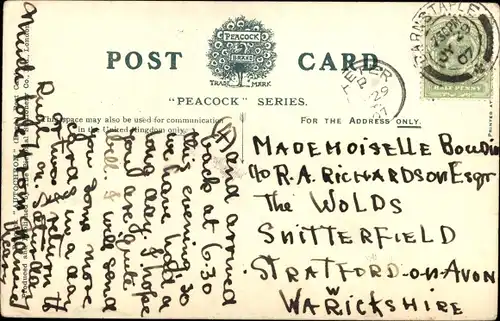 POST CARD
PEACOCK
BRAND
TRADE MARK
"PEACOCK" SERIES.
This space may also be used for communication
in the United Kingdom only.
FOR THE ADDRESS ONLY.
BARNSTAPLE
07
HALF PENNY
29
and arrived
back at 6.30
this evening so
we have had a
long day. I hope
you are quite
well. I will send
you some more
cards in a day
or two. I return to
on Saturday
with love from
MADEMOISELLE
c/o R.A. RICHARDSON Esqr
THE WOLDS
SNITTERFIELD
STRATFORD-ON-AVON
WARICKSHIRE
W